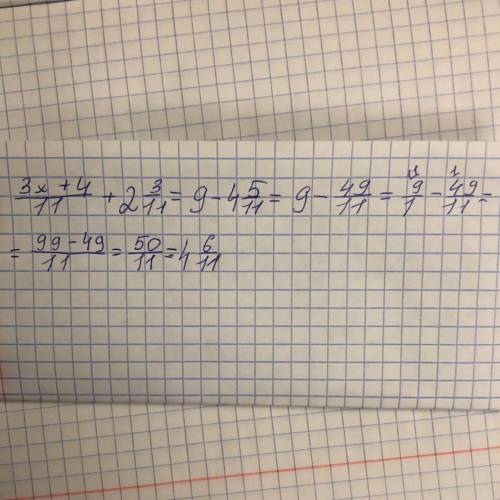 (3x+4)/11 + 2 3/11 = 9 - 4 5/11 = 9 - 49/11 = 9/1 - 49/11 =
= (99-49)/11 = 50/11 = 4 6/11